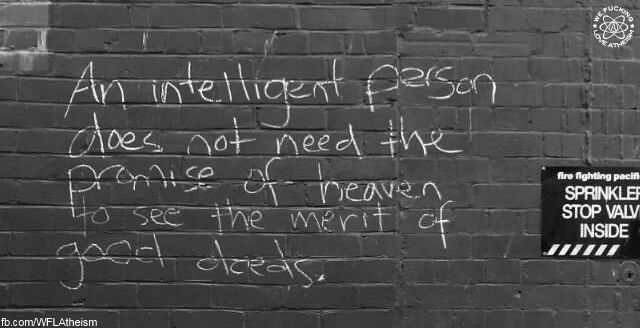 WE FUCKING
LOVE ATHEISM
An intelligent person
does not need the
promise of heaven
to see the merit of
good deeds.
fire fighting pacifi
SPRINKLER
STOP VALV
INSIDE
fb.com/WFLAtheism